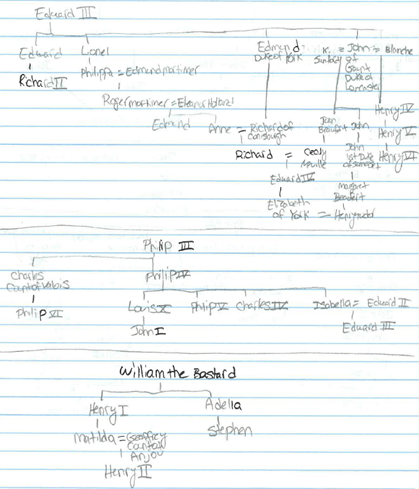 Edward III
Edward Lionel Edmond Duke of York K. Swinford = John of Gaunt Duke of Lancaster = Blanche
Richard II Philippa = Edmund mortimer
Roger mortimer = Eleanor Holland
Edmund Anne = Richard of Joan Beaufort John Henry IV
Henry V
Richard = Cecily Neville John Henry VI
Edward IV Margret Beaufort
Elizabeth of York = Henry tudor
Philip III
Charles Count of Valois Philip IV
Philip VI Louis X Philip V Charles IV Isabella = Edward II
John I Edward III
William the Bastard
Henry I Adella
Matilda = Geoffrey Count of Anjou Stephen
Henry II